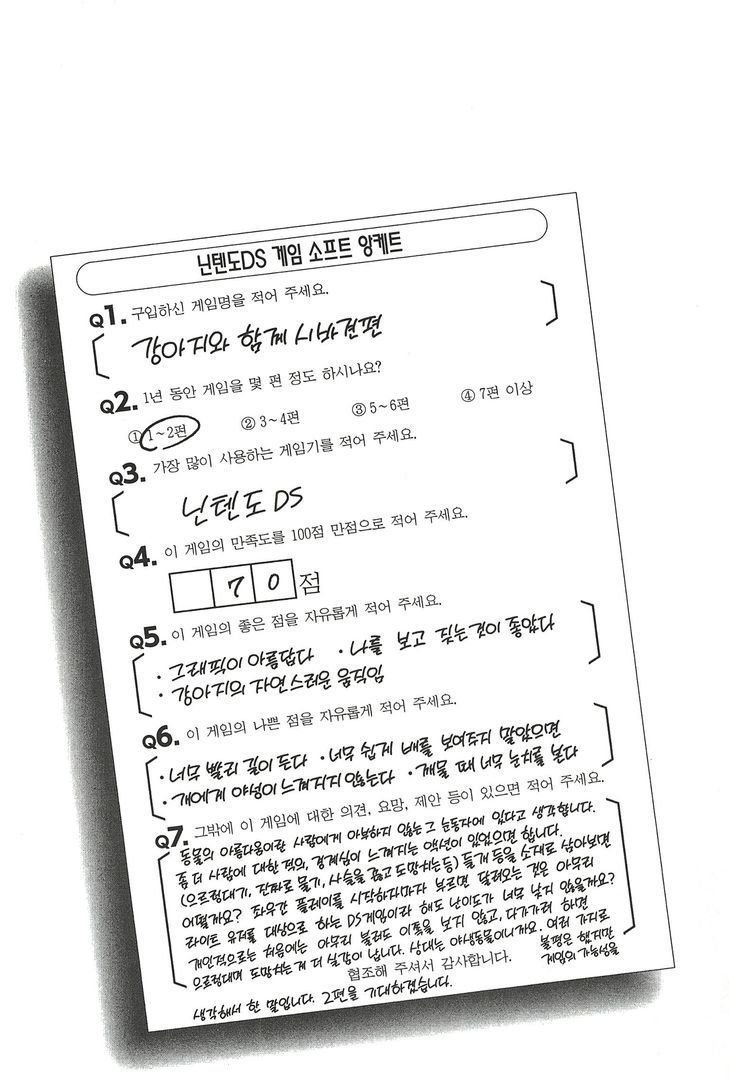 닌텐도DS 게임 소프트 앙케트
Q1. 구입하신 게임명을 적어 주세요.
강아지와 함께 시바견편
Q2. 1년 동안 게임을 몇 편 정도 하시나요?
① 1~2편 ② 3~4편 ③ 5~6편 ④ 7편 이상
Q3. 가장 많이 사용하는 게임기를 적어 주세요.
닌텐도 DS
Q4. 이 게임의 만족도를 100점 만점으로 적어 주세요.
70점
Q5. 이 게임의 좋은 점을 자유롭게 적어 주세요.
· 그래픽이 아름답다 · 나를 보고 짖는 것이 좋았다
· 강아지의 자연스러운 움직임
Q6. 이 게임의 나쁜 점을 자유롭게 적어 주세요.
· 너무 빨리 길이 든다 · 너무 쉽게 배를 보여주지 말았으면
· 개에게 야성이 느껴지지 않는다 · 깨물 때 너무 눈치를 본다
Q7. 그밖에 이 게임에 대한 의견, 요망, 제안 등이 있으면 적어 주세요.
동물의 아름다움이란 사람에게 아부하지 않는 그 눈동자에 있다고 생각합니다.
좀 더 사람에 대한 적의, 경계심이 느껴지는 액션이 있었으면 합니다.
(으르렁대기, 진짜로 물기, 사슬을 끊고 도망치는 등) 들개 등을 소재로 삼아보면
어떨까요? 좌우간 플레이를 시작하자마자 부르면 달려오는 것은 아무리
라이트 유저를 대상으로 하는 DS게임이라 해도 난이도가 너무 낮지 않을까요?
개인적으로는 처음에는 아무리 불러도 이쪽을 보지 않고, 다가가려 하면
으르렁대며 도망치는 게 더 실감이 납니다. 상대는 야생동물이니까요. 여러 가지로
불평은 했지만
협조해 주셔서 감사합니다.
게임의 가능성을
생각해서 한 말입니다. 2편을 기대하겠습니다.